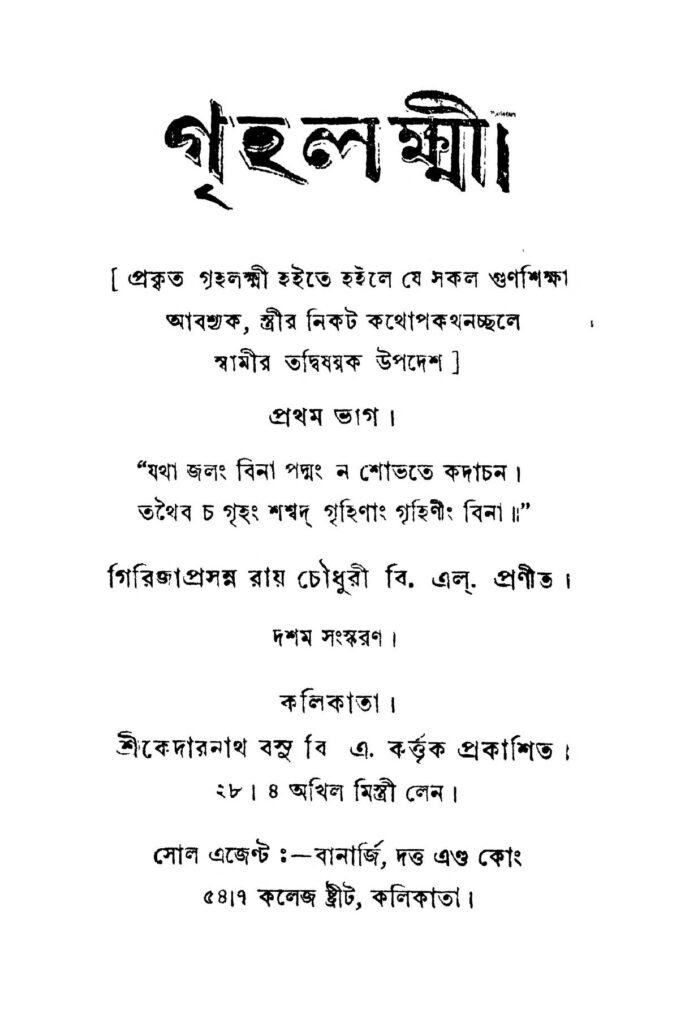 গৃহলক্ষ্মী।
[ প্রকৃত গৃহলক্ষ্মী হইতে হইলে যে সকল গুণশিক্ষা
আবশ্যক, স্ত্রীর নিকট কথোপকথনচ্ছলে
স্বামীর তদ্বিষয়ক উপদেশ ]
প্রথম ভাগ।
“যথা জলং বিনা পদ্মং ন শোভতে কদাচন।
তথৈব চ গৃহং শশ্বদ্ গৃহিণাং গৃহিণীং বিনা॥”
গিরিজাপ্রসন্ন রায় চৌধুরী বি. এল্. প্রণীত।
দশম সংস্করণ।
কলিকাতা।
শ্রীকেদারনাথ বসু বি এ. কর্ত্তৃক প্রকাশিত।
২৮। ৪ অখিল মিস্ত্রী লেন।
সোল এজেণ্ট :—বানার্জি, দত্ত এণ্ড কোং
৫৪।৭ কলেজ ষ্ট্রীট, কলিকাতা।